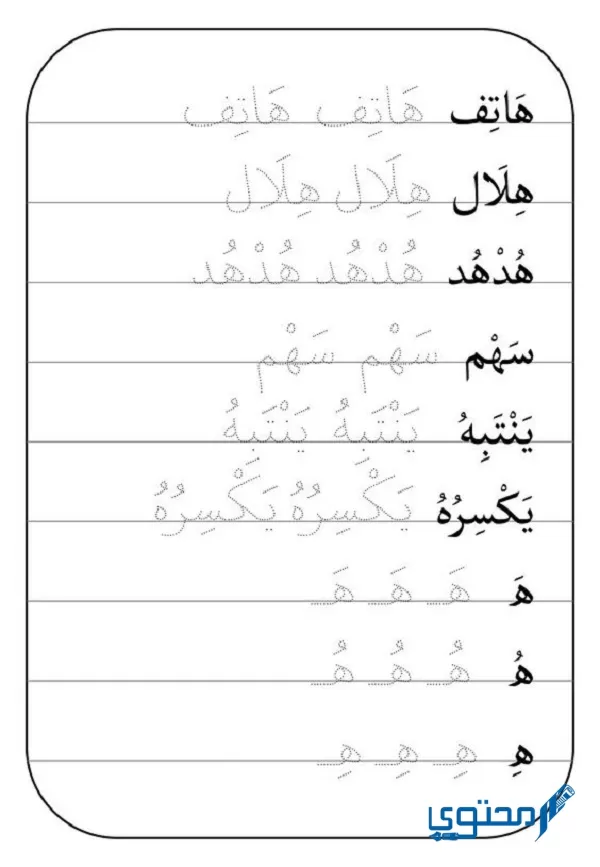 هَاتِف هَاتِف هَاتِف
هِلَال هِلَال هِلَال
هُدْهُد هُدْهُد هُدْهُد
سَهْم سَهْم سَهْم
يَنْتَبِهُ يَنْتَبِهُ يَنْتَبِهُ
يَكْسِرُهُ يَكْسِرُهُ يَكْسِرُهُ
هَ هَـ هَـ هَـ
هُ هُـ هُـ هُـ
هِ هِـ هِـ هِـ
محتوى